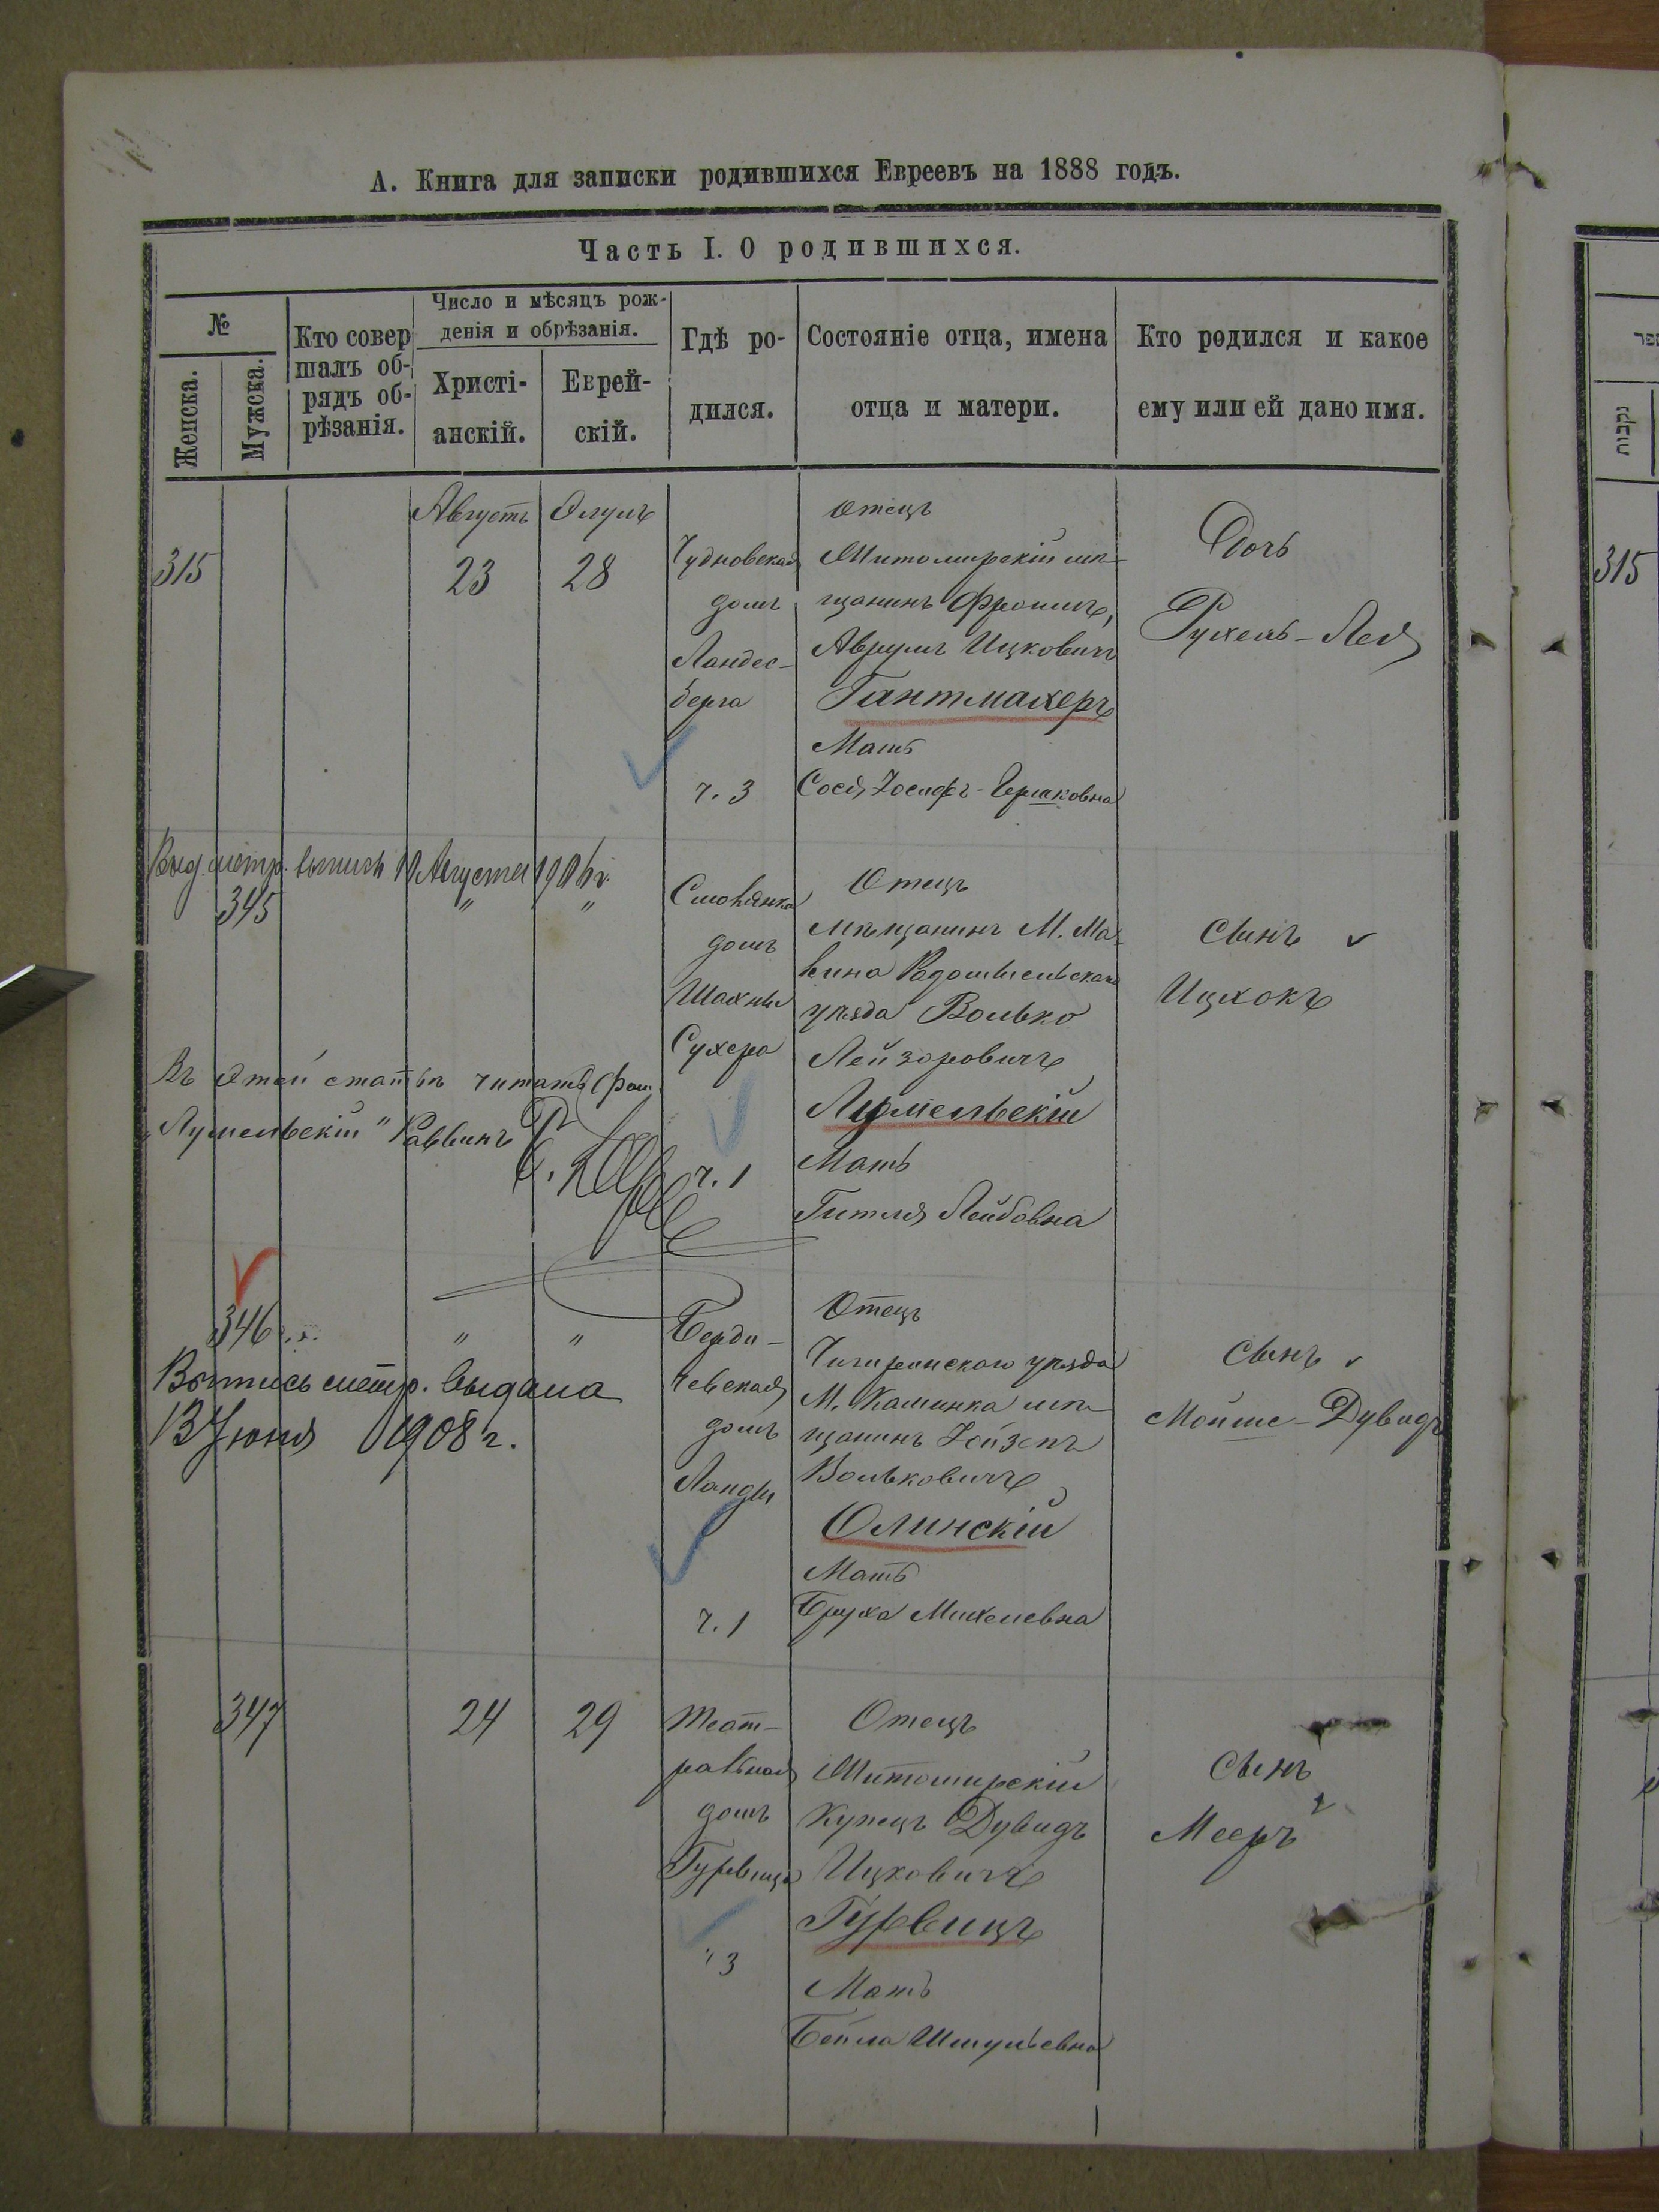 А. Книга для записки родившихся Евреевъ на 1888 годъ.
Часть I. О родившихся.
№
Женска.
Мужска.
Кто совер
шалъ об-
рядъ об-
рѣзанія.
Число и мѣсяцъ рож-
денія и обрѣзанія.
Христі-
анскій.
Еврей-
скій.
Гдѣ ро-
дился.
Состояніе отца, имена
отца и матери.
Кто родился и какое
ему или ей дано имя.
315
Августъ
23
Элулъ
28
Чудновская
домъ
Ландес-
берга
ч. 3
Отецъ
Житомирскій мѣ-
щанинъ Фроимъ,
Аврумъ Ицковичъ
Гантмахеръ
Мать
Сося Іосифъ-Гершковна
Дочь
Рухель-Лея
Выд. метр. выпись 10 Августа 1906 г.
345
"
"
Смолянка
домъ
Шахны
Сухера
ч. 1
Отецъ
мѣщанинъ М. Ма-
кина Радомысльскаго
уѣзда Волько
Лейзоровичъ
Мать
Гитля Лейбовна
сынъ
Ицхокъ
Въ этой статьѣ читать фам.
"Лумельскій" Раввинъ
346
"
"
Выпись метр. выдана
13 Іюня 1908 г.
Берди-
чевская
домъ
Ланды
ч. 1
Отецъ
Чигиринскаго уѣзда
М. Каминка мѣ-
щанинъ Іойзепъ
Вольковичъ
Олинскій
Мать
Бруха Михелевна
сынъ
Мойше-Дувидъ
347
24
29
Театр-
ральная
домъ
Гурвица
ч 3
Отецъ
Житомирскій
купецъ Дувидъ
Ицковичъ
Гурвицъ
Мать
Бейла Шмульевна
сынъ
Мееръ
נקבות
315